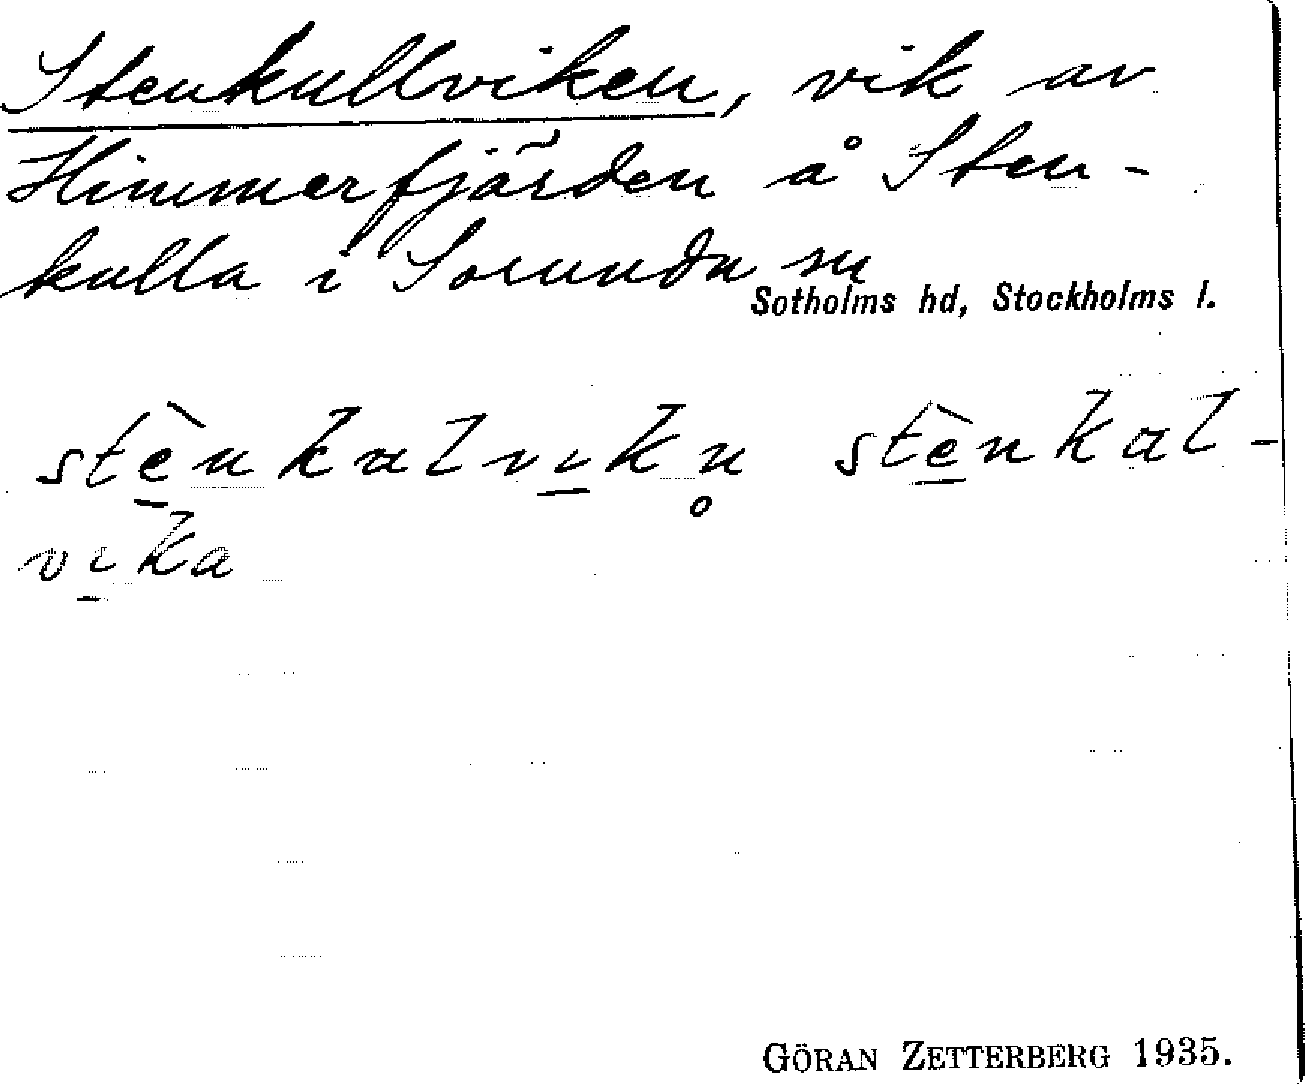 Stenkullviken, vik av
Himmerfjärden å Sten-
kulla i Sorunda sn
Sotholms hd, Stockholms l.
stènkalvikn̥ stènkal-
vika
GÖRAN ZETTERBERG 1935.